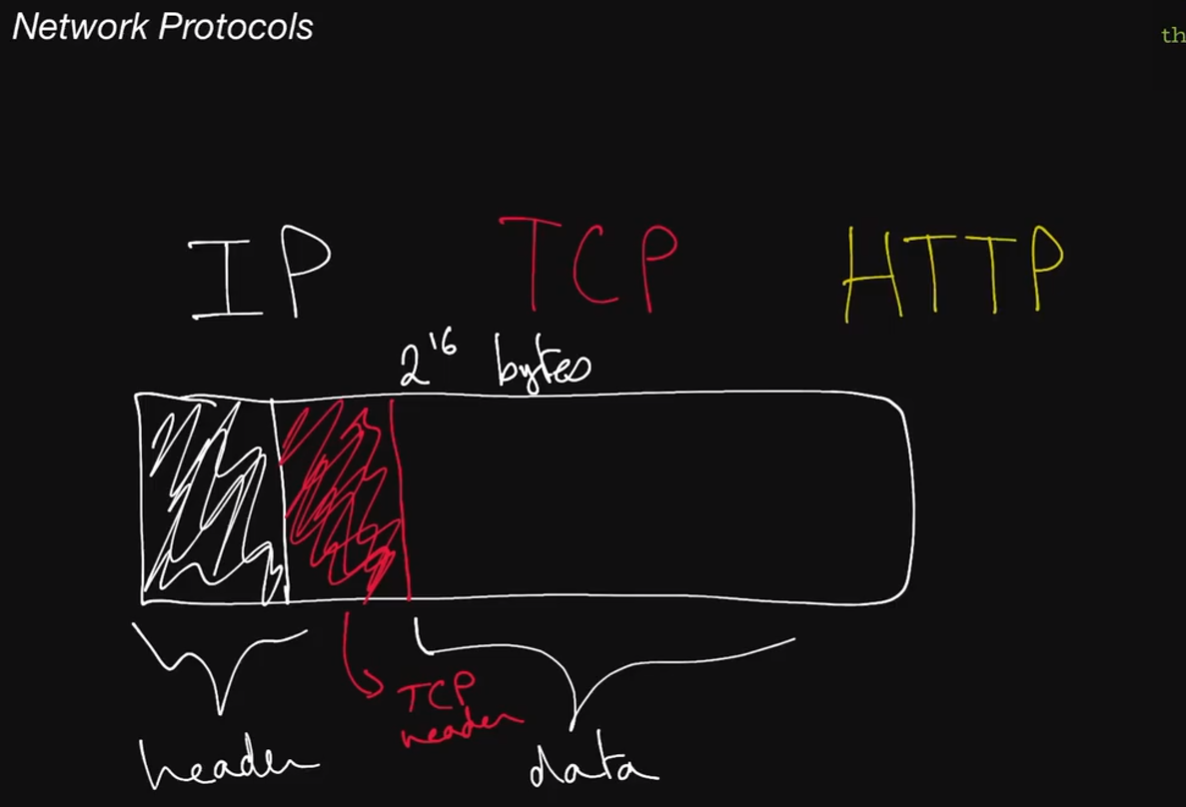 Network Protocols
th
IP TCP HTTP
2¹⁶ bytes
TCP
header
header
data